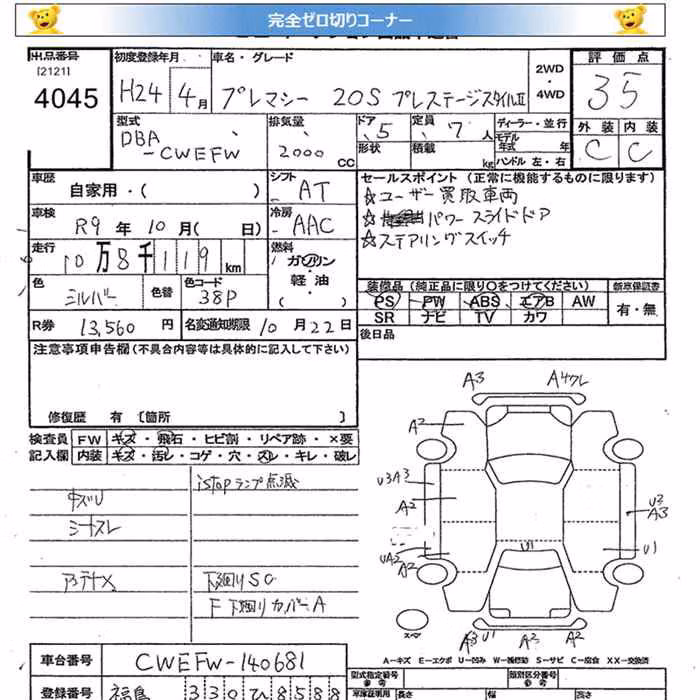 完全ゼロ切りコーナー
出品番号
[2121]
4045
初度登録年月
H24 4月
車名・グレード
プレマシー 20S プレステージスタイルⅡ
2WD
・
4WD
評価点
35
型式
DBA
-CWEFW
排気量
2000 cc
ドア
5
定員
7人
形状
積載
kg
ディーラー・並行
モデル
年式 年
ハンドル 左・右
外装 内装
C C
車歴
自家用・( )
シフト
AT
車検
R9年10月( 日)
冷房
AAC
走行
10万8千119km
燃料
ガソリン
軽油
( )
色
シルバー
色替
色コード
38P
R券
13,560円
名変通知期限 10月22日
セールスポイント (正常に機能するものに限ります)
☆ユーザー買取車両
☆パワースライドドア
☆ステアリングスイッチ
装備品 (純正品に限り○をつけてください)
新車保証書
PS PW ABS エアB AW
SR ナビ TV カワ
有・無
後日品
注意事項申告欄 (不具合内容等は具体的に記入して下さい)
修復歴 有 [箇所 ]
検査員 FW キズ・飛石・ヒビ割・リペア跡・×要
記入欄 内装 キズ・汚レ・コゲ・穴・スレ・キレ・破レ
istopランプ点滅
シートスレ
下回りSC
F下回りカバーA
A3
A4ワレ
A2
U3A3
A2
UA2
A2
U3
A3
U1
U1
A3 U1 A2 A2
スペア
A－キズ E－エクボ U－凹み W－補修跡 S－サビ C－腐食 XX－交換済
車台番号
CWEFW-140681
登録番号
福島 330ひ8588
型式指定番号
参考
類別区分番号
参考
長さ 幅 高さ